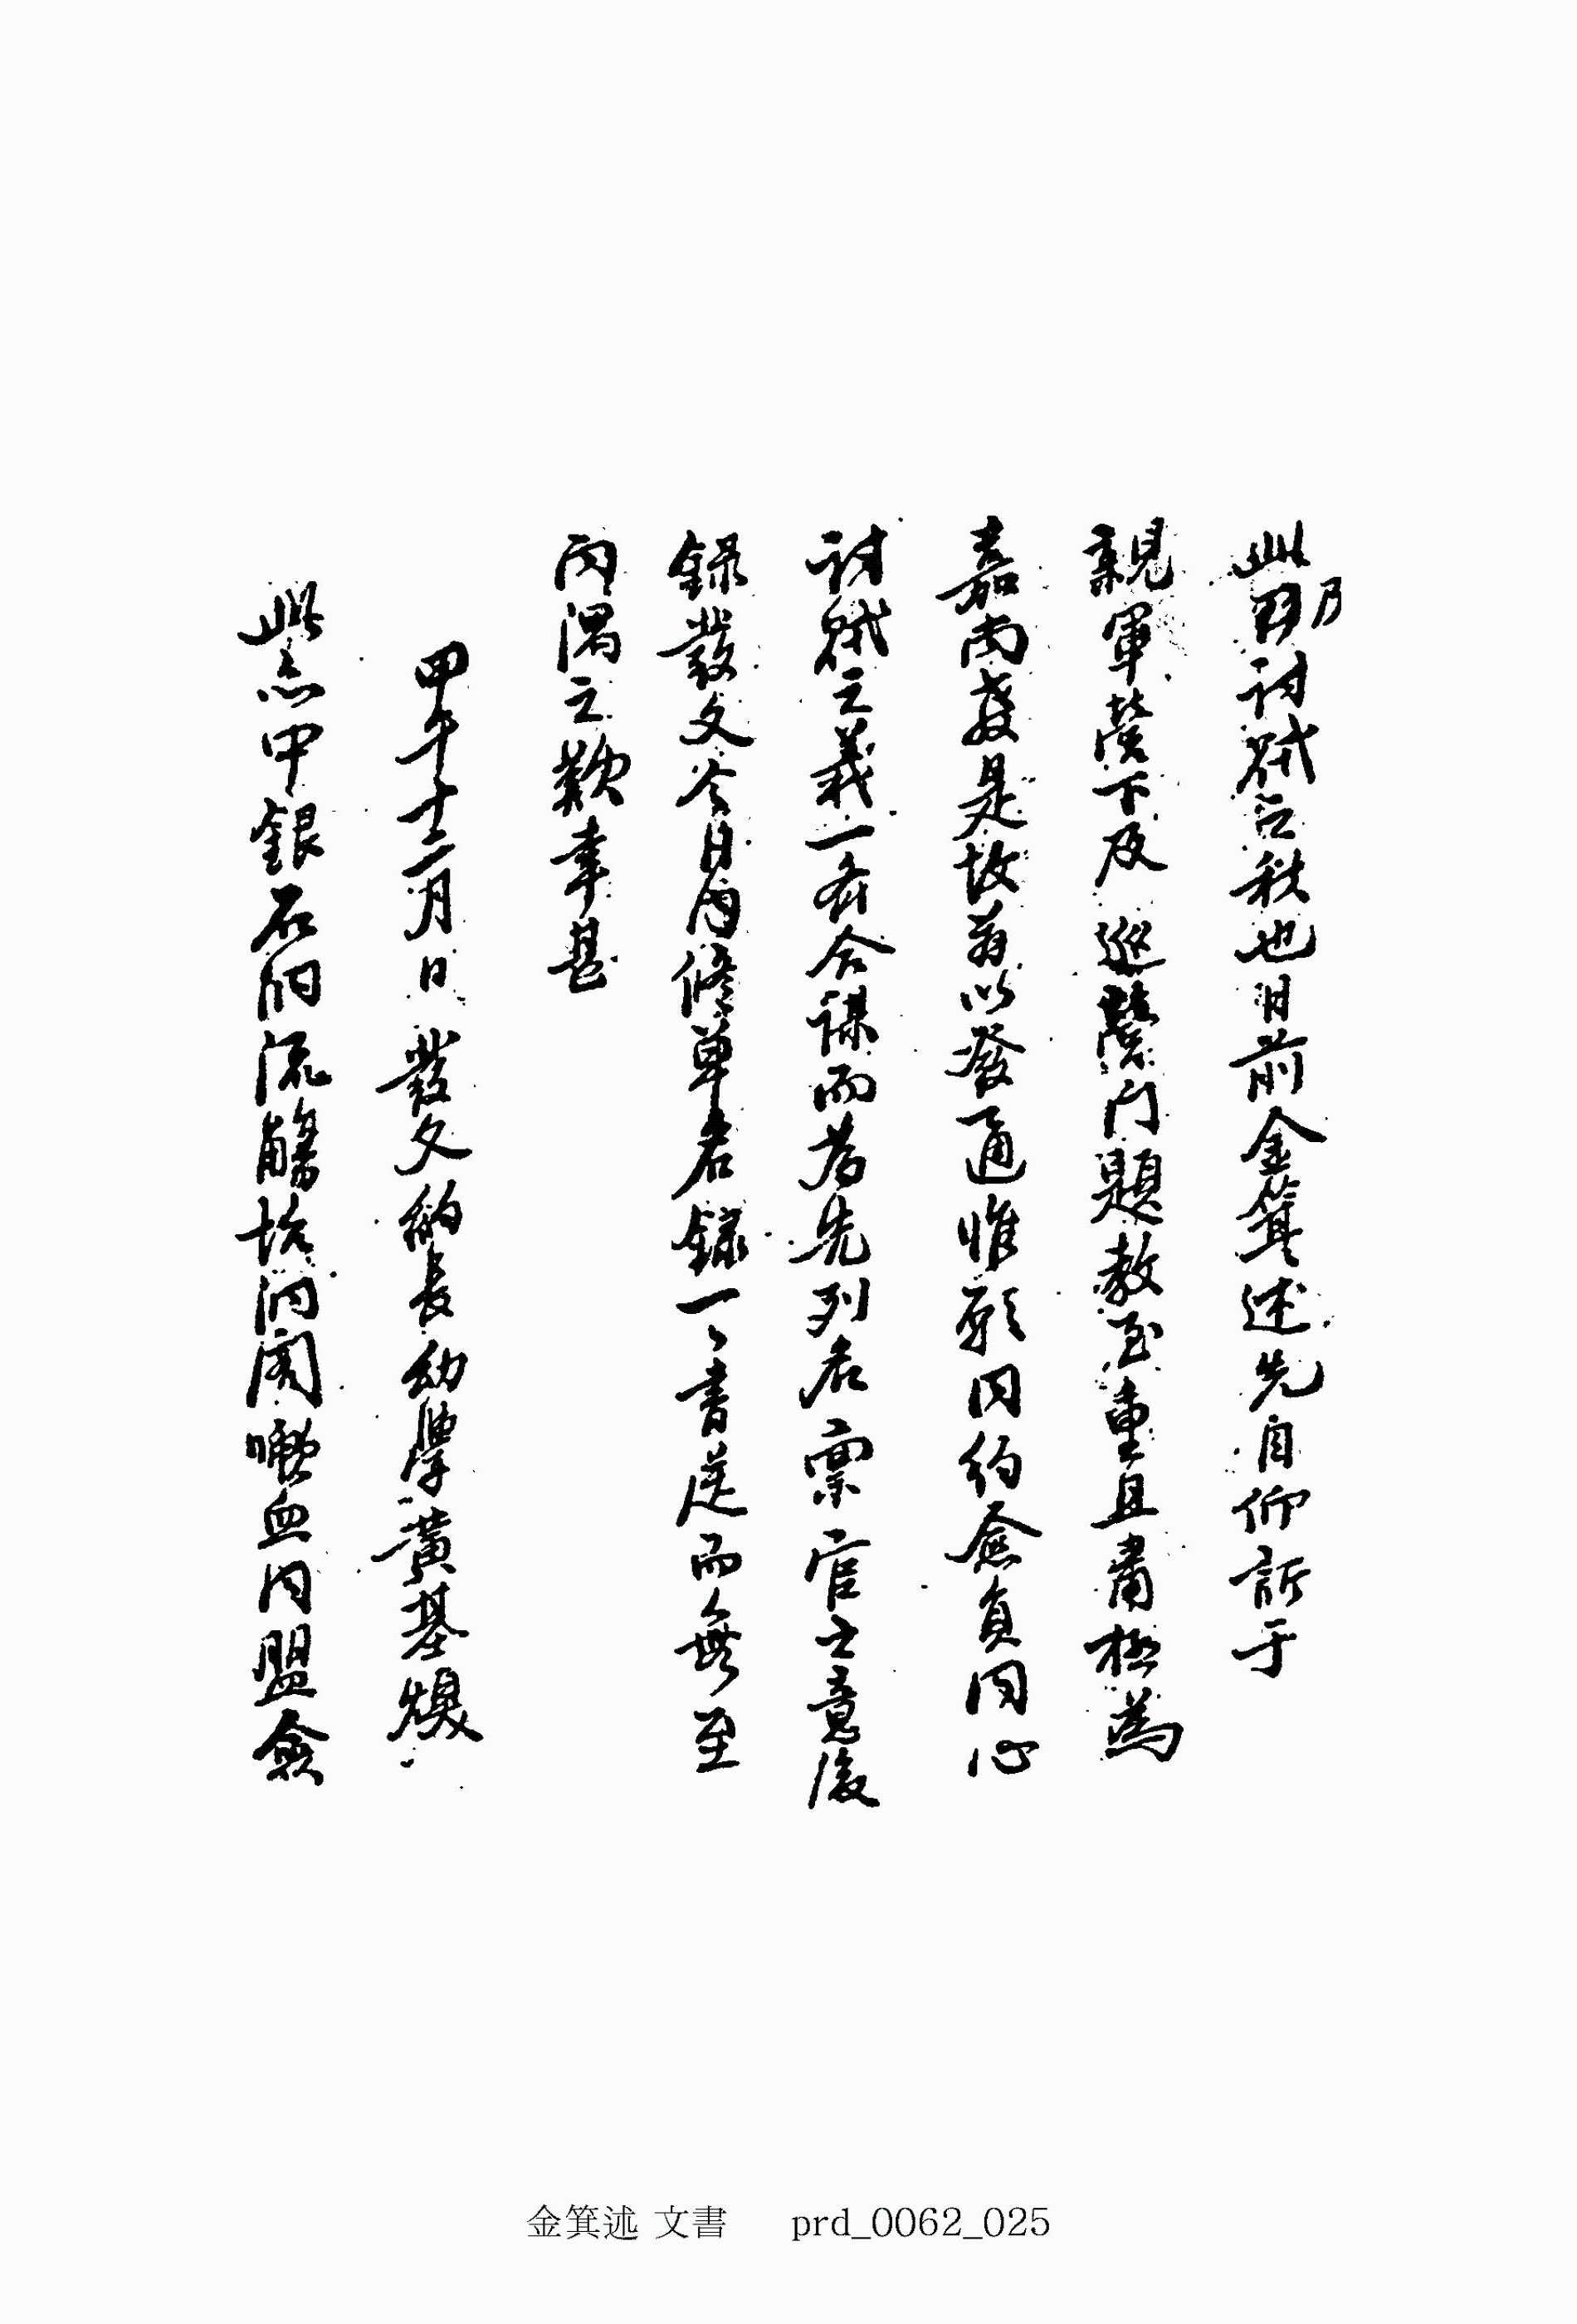 此乃討賊之秋也日前金箕述先自仰訴于
親軍營下及 巡營門題教至重且肅極爲
嘉尙玆是故茲以發通惟願同約僉員同心
討賊之義一齊合謀而爲先列名稟官之意後
錄發文今日內修單名錄一々書送而無至
向隅之歎幸甚
甲午十二月日 發文約長幼學黃基煥
此亦中銀石洞流觴坮洞闊嘯血同盟僉
金箕述 文書 prd_0062_025